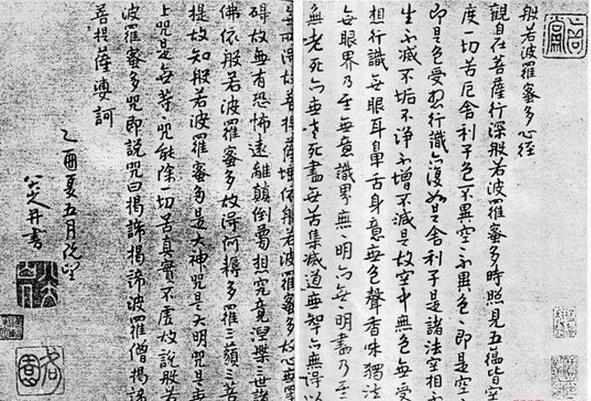 般若波羅蜜多心经
觀自在菩薩行深般若波羅蜜多時照見五蘊皆空
度一切苦厄舍利子色不異空々不異色々即是空々
即是色受想行識亦復如是舍利子是諸法空相不
生不滅不垢不淨不增不減是故空中無色無受
想行識無眼耳鼻舌身意無色聲香味觸法
無眼界乃至無意識界無々明亦無々明盡乃至
無老死亦無老死盡無苦集滅道無智亦無得以
無所得故菩提薩埵依般若波羅蜜多故心無罣
礙故無有恐怖遠離顛倒夢想究竟涅槃三世諸
佛依般若波羅蜜多故得阿耨多羅三藐三菩
提故知般若波羅蜜多是大神咒是大明咒是無
上咒是無等々咒能除一切苦真實不虛故說般若
波羅蜜多咒即說咒曰揭諦揭諦波羅僧揭諦
菩提薩婆訶
乙酉夏五月既望
八大山人書